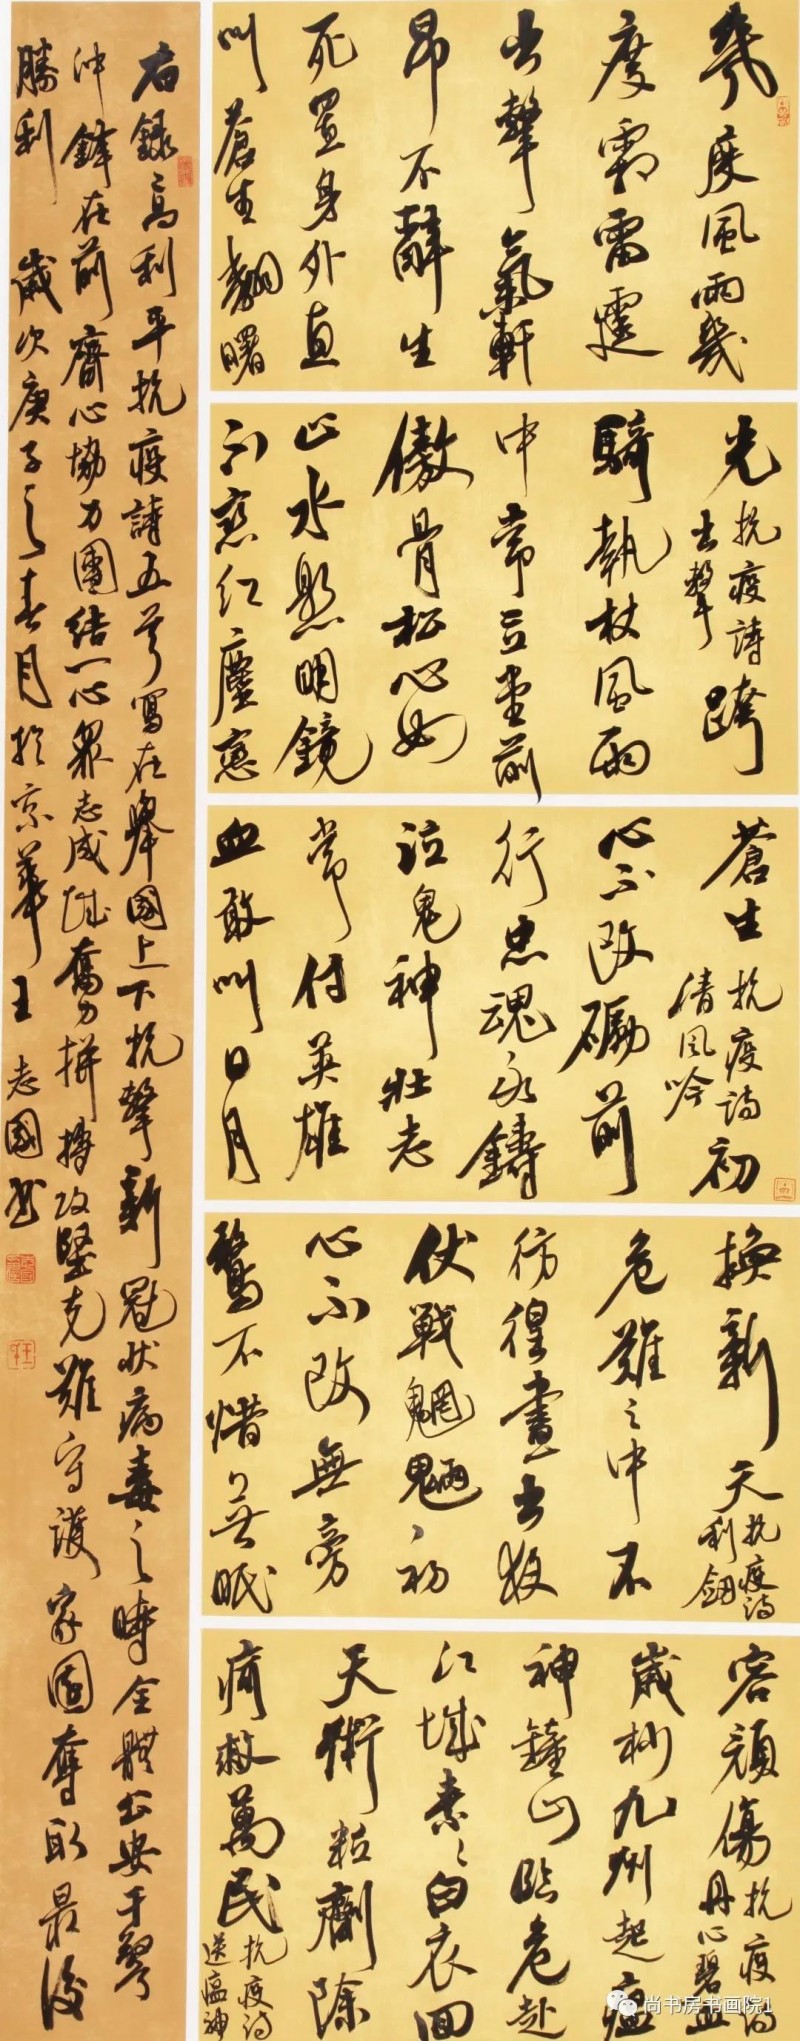 幾度風雨幾
度霜雷霆
出擊氣軒
昂不辭生
死置身外直
叫蒼生翹曙
光 抗疫詩 出擊 跨
騎執杖風雨
中常立前
傲骨松心如
止水照明鏡
不戀紅塵戀
蒼生 抗疫詩 清風吟 初
心不改礪前
行忠魂永鑄
泣鬼神壯志
常付英雄
血敢叫日月
換新天 抗疫詩 利劍
危難之中不
彷徨晝出夜
伏戰魍魎初
心不改無旁
鶩不惜無眠
容顏傷 抗疫詩 丹心碧血
歲杪九州起瘟
神鐘山臨危赴
江城素素白衣回
天術粒劑除
痾救萬民 抗疫詩 送瘟神
右錄高利平抗疫詩五首寫在舉國上下抗擊新冠狀病毒之時全體公安干警
沖鋒在前齊心協力團結一心眾志成城奮力拼搏攻堅克難守護家園奪取最後
勝利 歲次庚子之春月於京華王志國書
尚书房书画院1